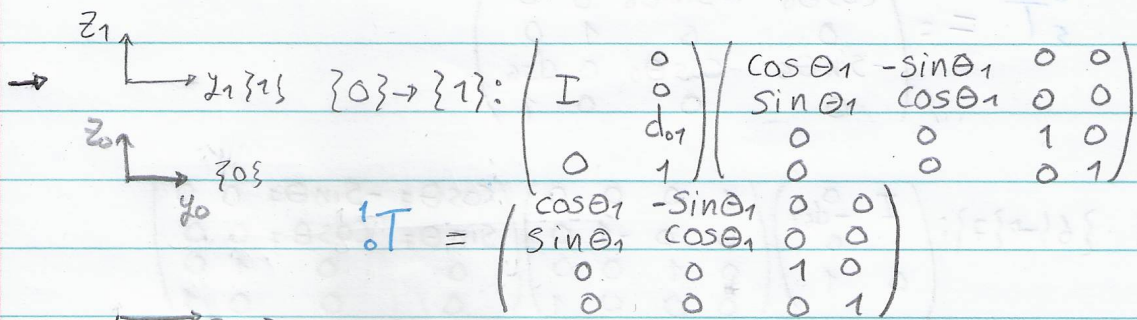 Z1
→ y1 {1} {0}→{1}: ( I 0 0 d01 0 1 ) ( cosθ1 -sinθ1 0 0
sinθ1 cosθ1 0 0
0 0 1 0
0 0 0 1 )
Z0
{0}
y0
1 0 T = ( cosθ1 -sinθ1 0 0
sinθ1 cosθ1 0 0
0 0 1 0
0 0 0 1 )